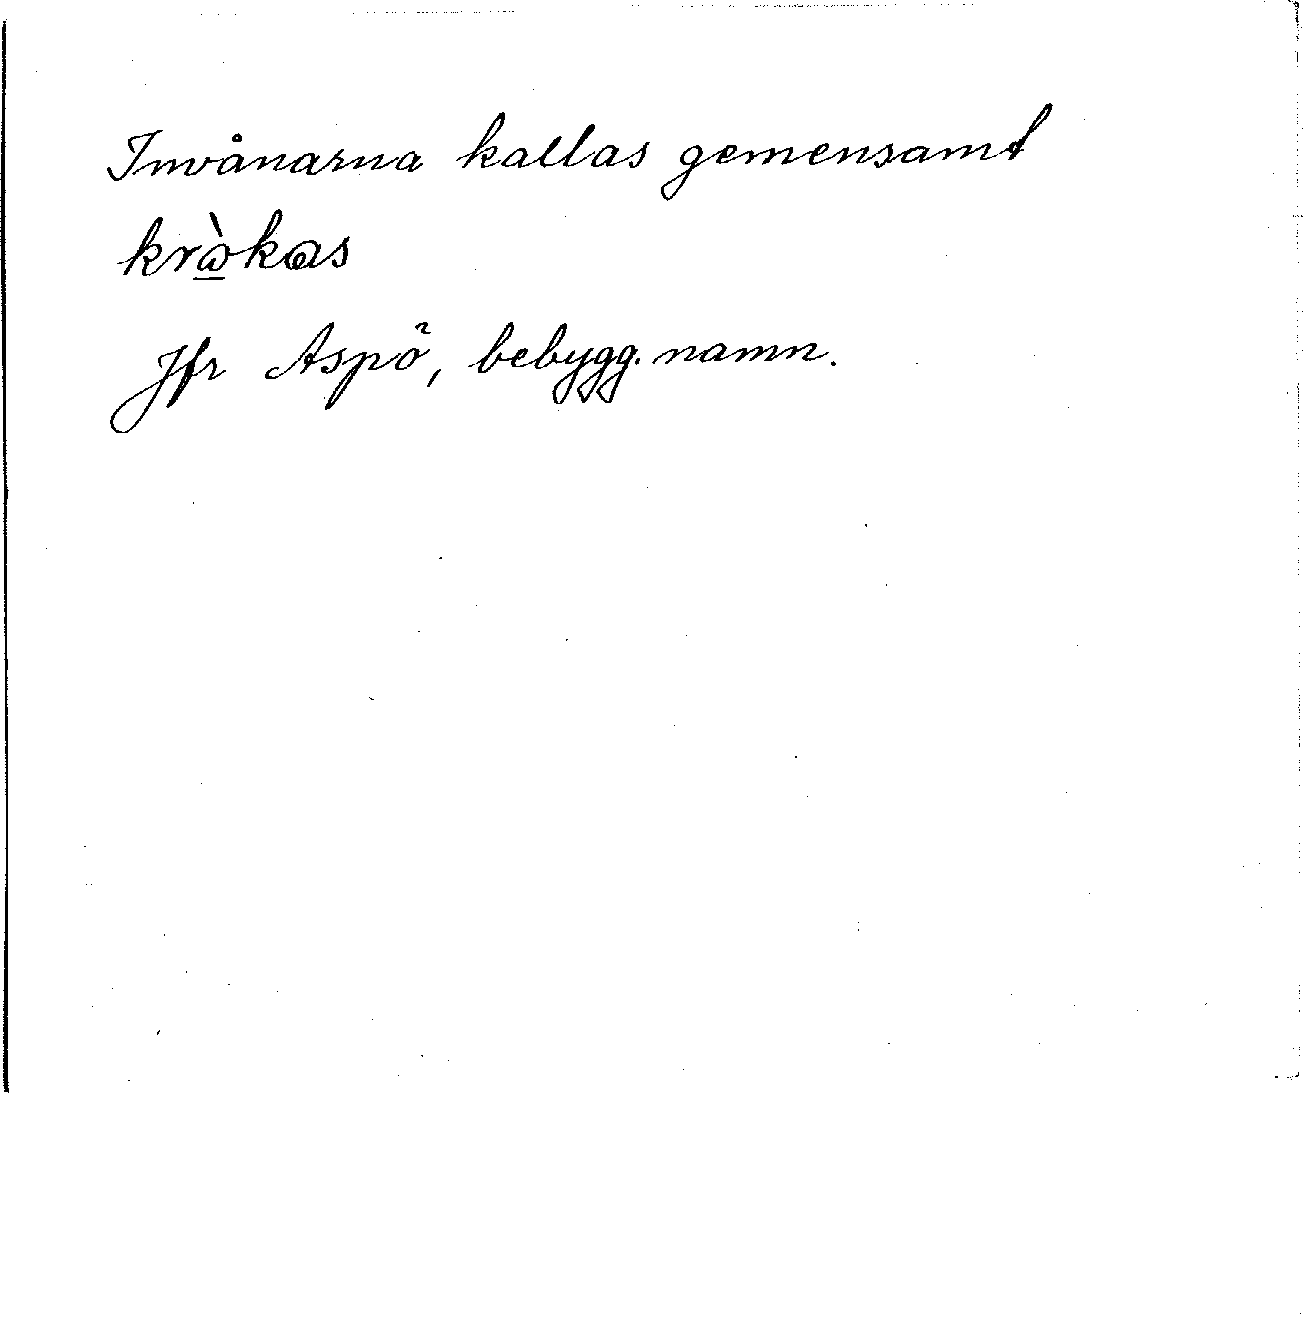 Invånarna kallas gemensamt
Jfr Aspö, bebygg. namn.